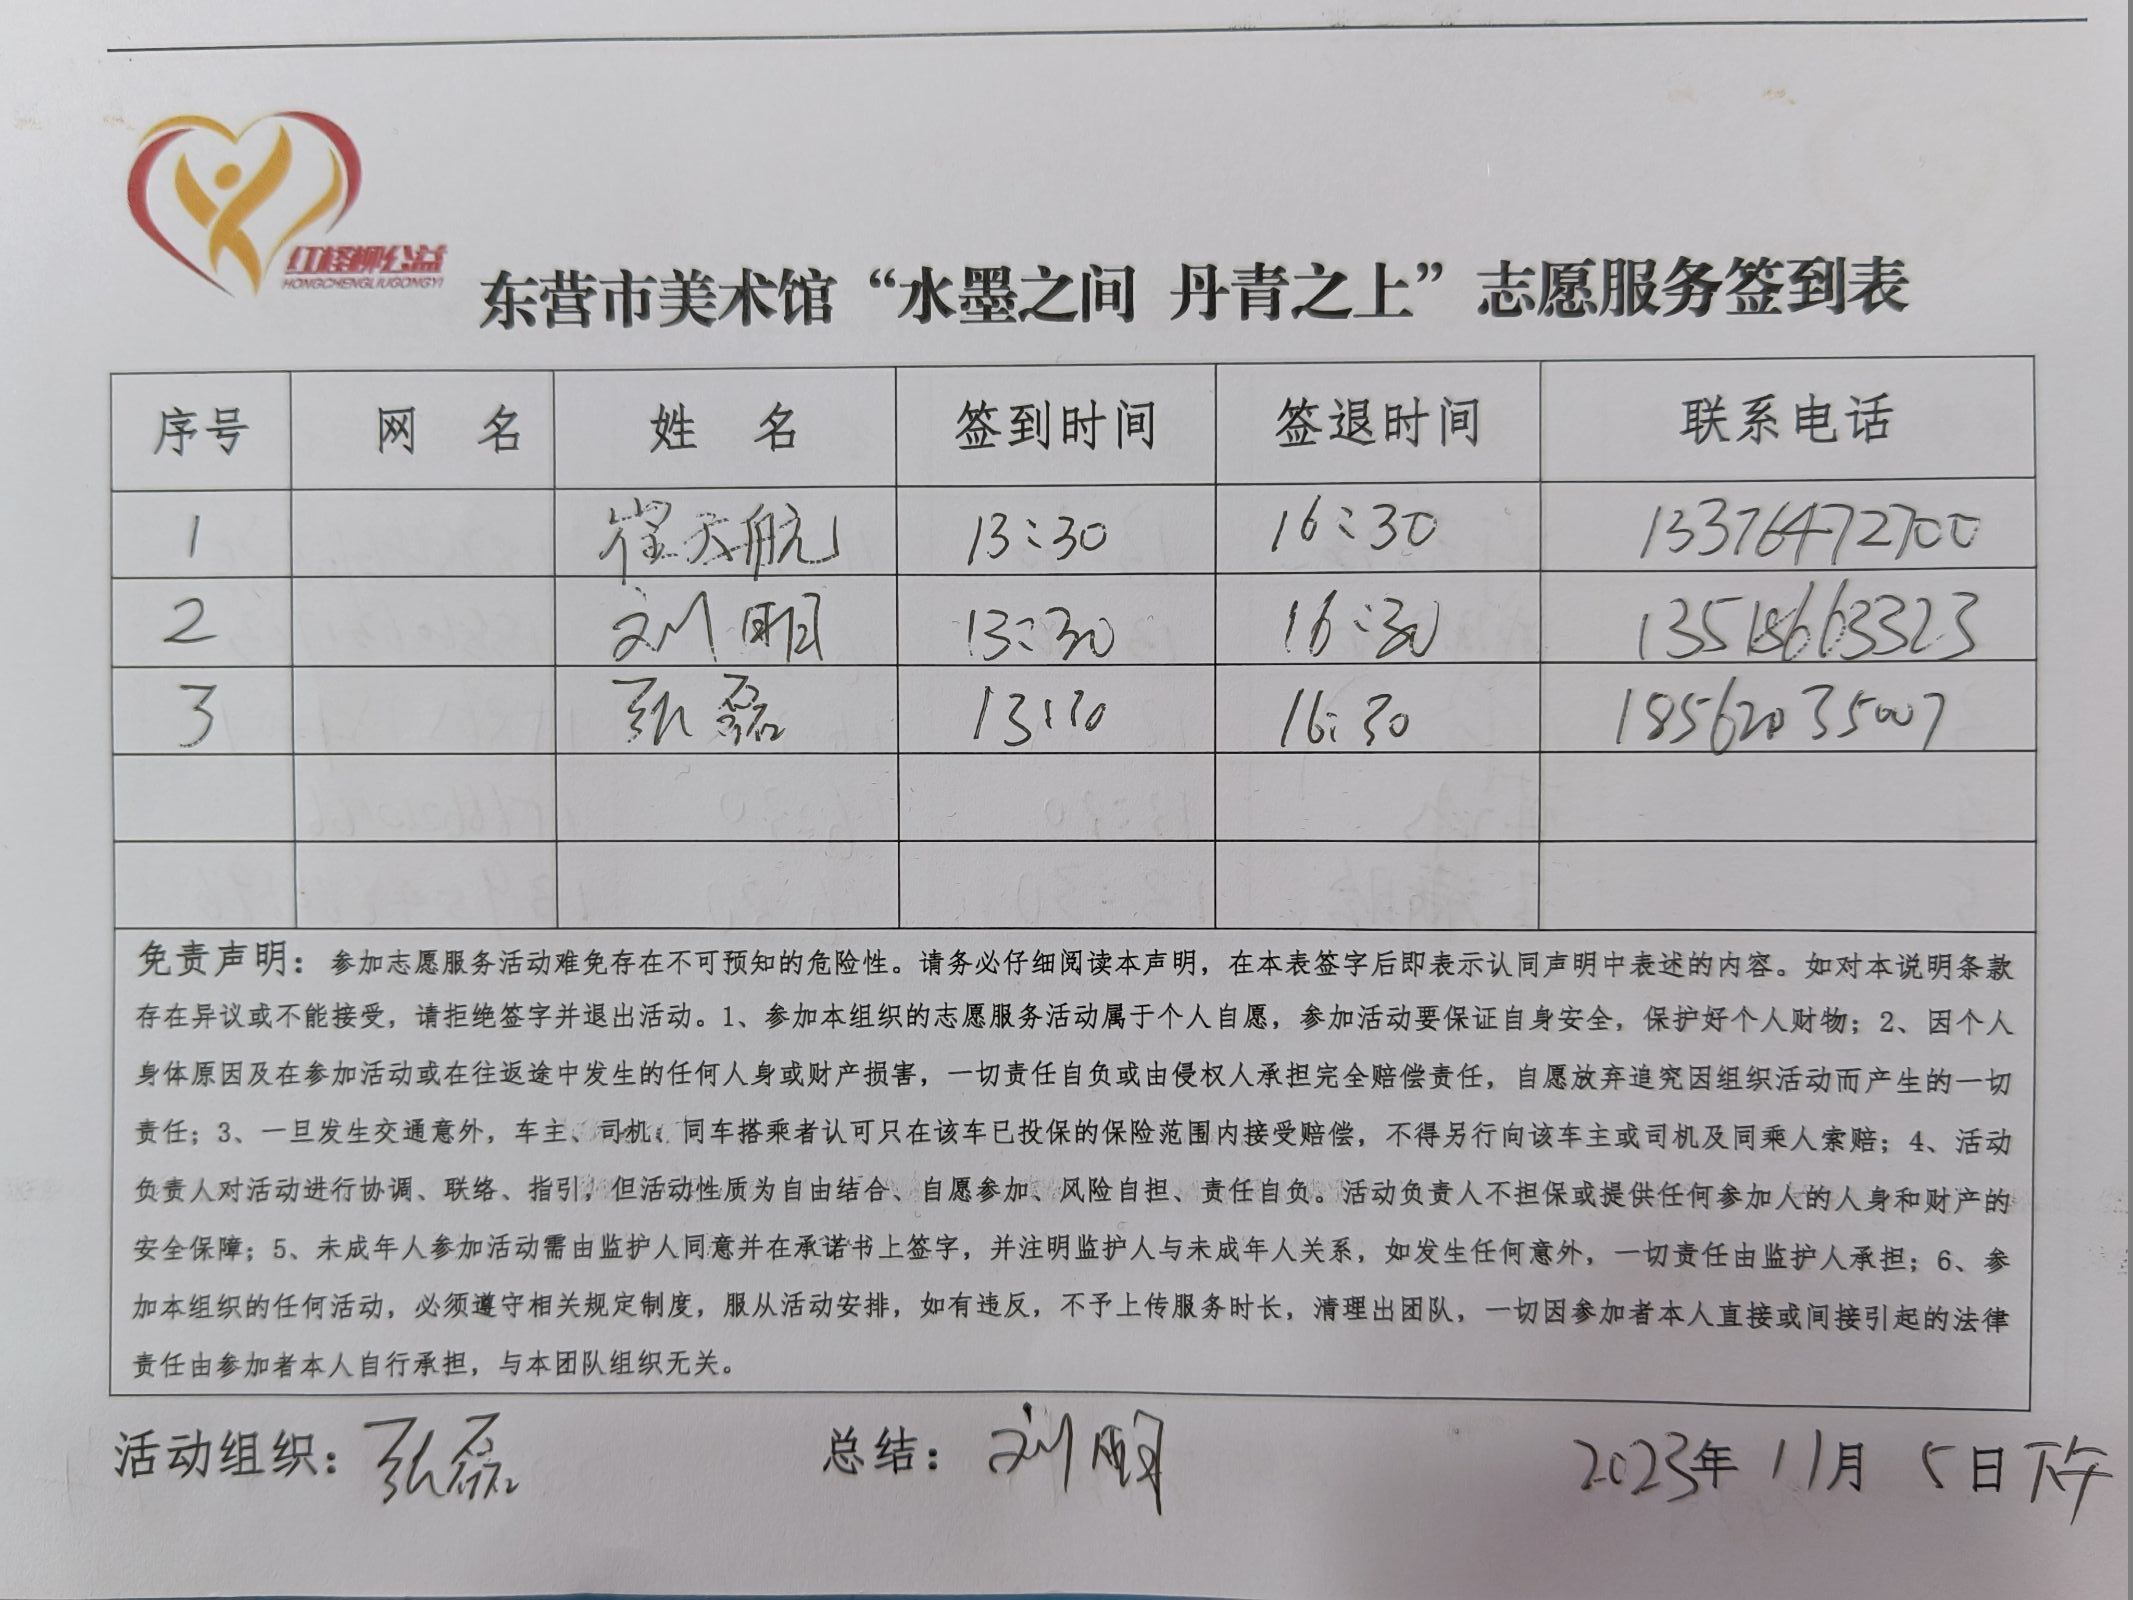 红柽柳公益
HONGCHENGLIUGONGYI
东营市美术馆“水墨之间 丹青之上”志愿服务签到表
序号 网 名 姓 名 签到时间 签退时间 联系电话
1 崔天航 13:30 16:30 13376472700
2 刘明 13:30 16:30 13518663323
3 张磊 13:30 16:30 18562035007
免责声明：参加志愿服务活动难免存在不可预知的危险性。请务必仔细阅读本声明，在本表签字后即表示认同声明中表述的内容。如对本说明条款
存在异议或不能接受，请拒绝签字并退出活动。1、参加本组织的志愿服务活动属于个人自愿，参加活动要保证自身安全，保护好个人财物；2、因个人
身体原因及在参加活动或在往返途中发生的任何人身或财产损害，一切责任自负或由侵权人承担完全赔偿责任，自愿放弃追究因组织活动而产生的一切
责任；3、一旦发生交通意外，车主、司机、同车搭乘者认可只在该车已投保的保险范围内接受赔偿，不得另行向该车主或司机及同乘人索赔；4、活动
负责人对活动进行协调、联络、指引，但活动性质为自由结合、自愿参加、风险自担、责任自负。活动负责人不担保或提供任何参加人的人身和财产的
安全保障；5、未成年人参加活动需由监护人同意并在承诺书上签字，并注明监护人与未成年人关系，如发生任何意外，一切责任由监护人承担；6、参
加本组织的任何活动，必须遵守相关规定制度，服从活动安排，如有违反，不予上传服务时长，清理出团队，一切因参加者本人直接或间接引起的法律
责任由参加者本人自行承担，与本团队组织无关。
活动组织：张磊 总结：刘明 2023年 11月 5日下午